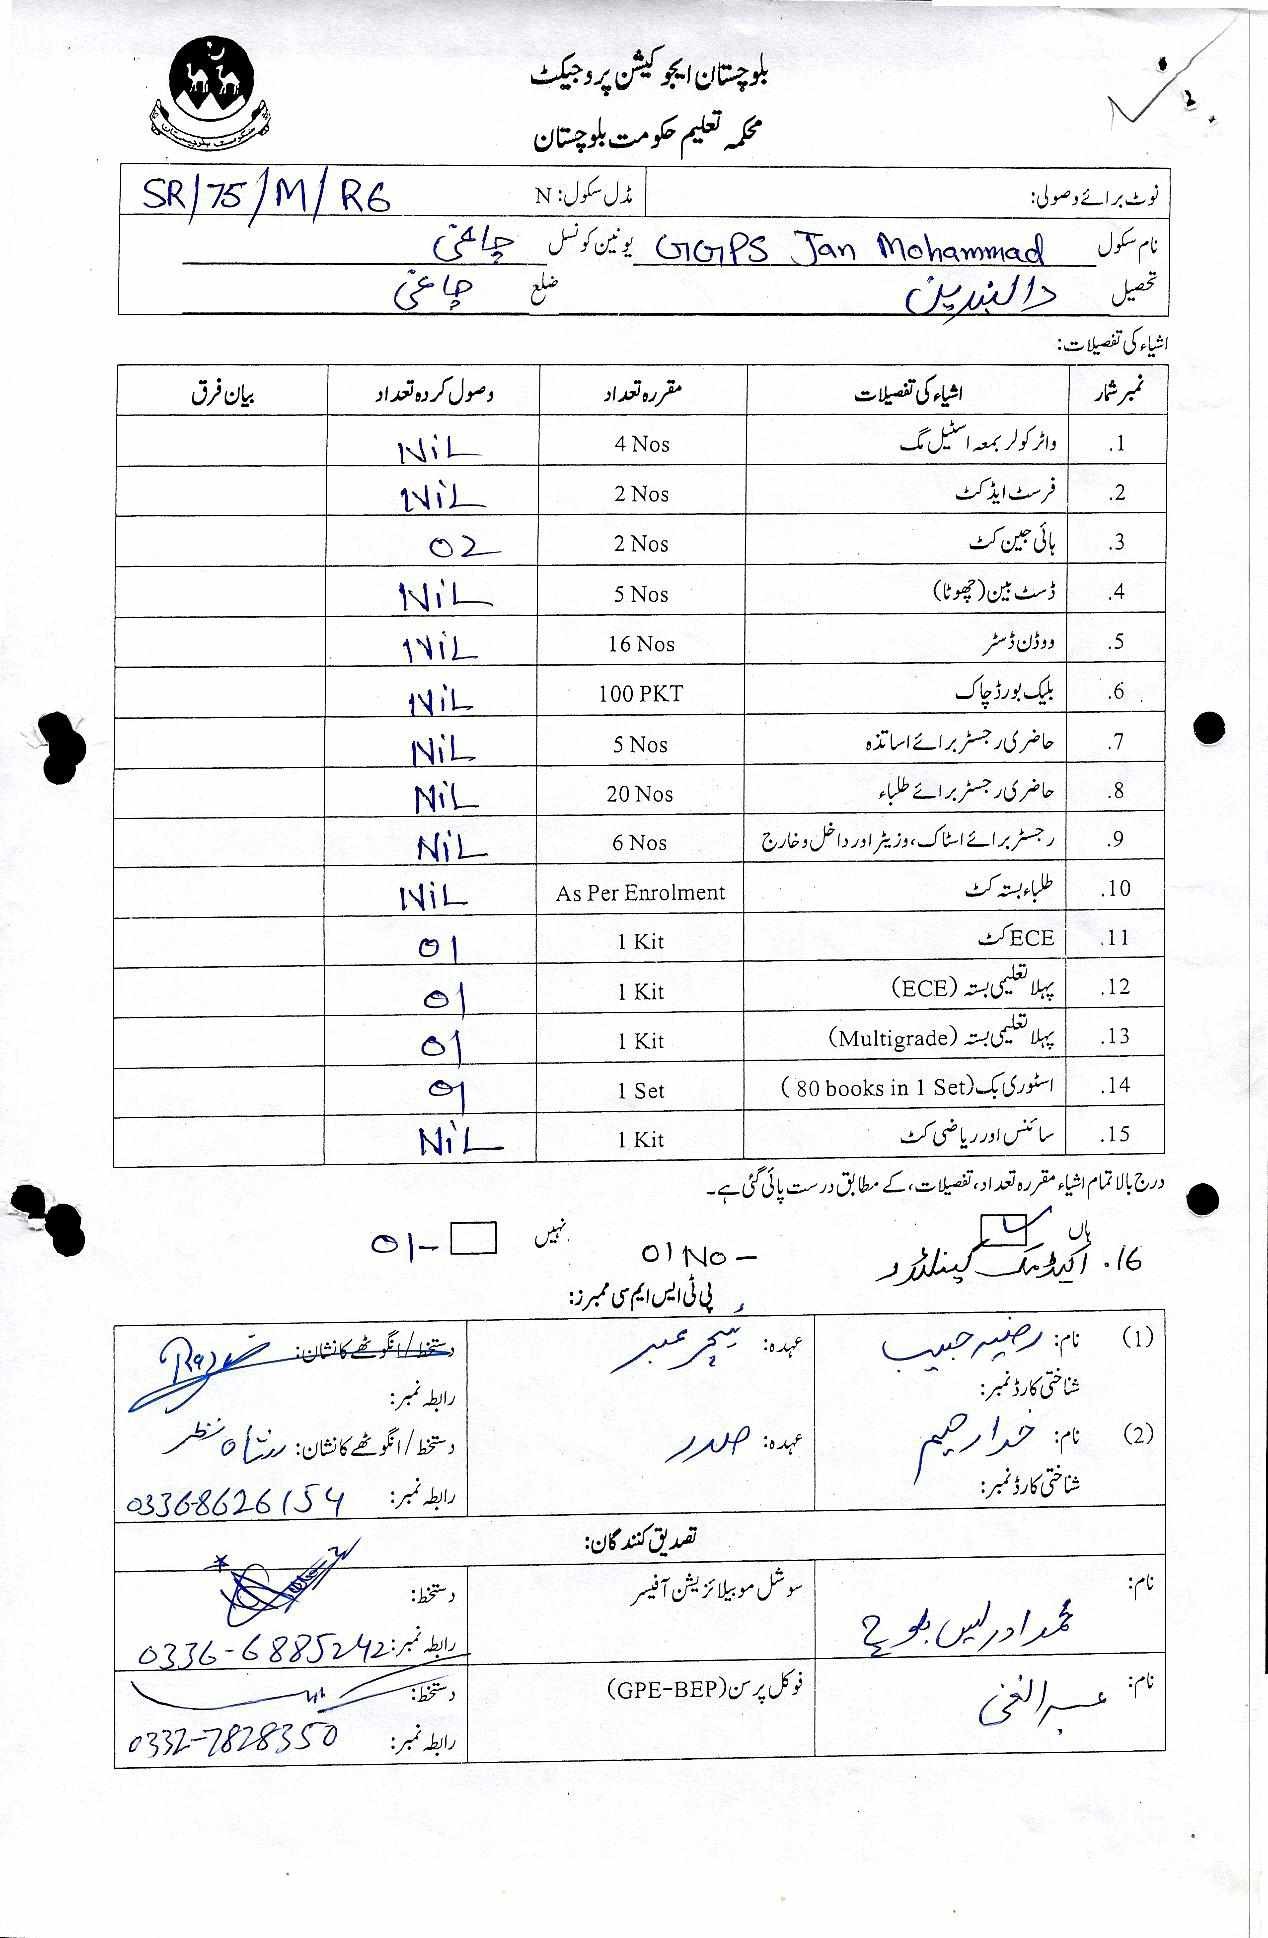 بلوچستان ایجوکیشن پروجیکٹ
محکمہ تعلیم حکومت بلوچستان
حکومت بلوچستان
نوٹ برائے وصولی: مڈل سکول: N SR/75/M/R6
نام سکول GGPS Jan Mohammad یونین کونسل چاغی
تحصیل دالبندین ضلع چاغی
اشیاء کی تفصیلات:
نمبر شمار اشیاء کی تفصیلات مقررہ تعداد وصول کردہ تعداد بیان فرق
1. واٹر کولر بمعہ اسٹیل مگ 4 Nos NiL
2. فرسٹ ایڈ کٹ 2 Nos NiL
3. ہائی جین کٹ 2 Nos 02
4. ڈسٹ بین (چھوٹا) 5 Nos NiL
5. ووڈن ڈسٹر 16 Nos NiL
6. بلیک بورڈ چاک 100 PKT NiL
7. حاضری رجسٹر برائے اساتذہ 5 Nos NiL
8. حاضری رجسٹر برائے طلباء 20 Nos NiL
9. رجسٹر برائے اسٹاک، وزیٹر اور داخل و خارج 6 Nos NiL
10. طلباء بستہ کٹ As Per Enrolment NiL
11. ECE کٹ 1 Kit 01
12. پہلا تعلیمی بستہ (ECE) 1 Kit 01
13. پہلا تعلیمی بستہ (Multigrade) 1 Kit 01
14. اسٹوری بک (80 books in 1 Set) 1 Set 01
15. سائنس اور ریاضی کٹ 1 Kit NiL
درج بالا تمام اشیاء مقررہ تعداد، تفصیلات، کے مطابق درست پائی گئی ہے۔
ہاں نہیں
16. اکیڈمک کیلنڈر 01 No - 01-
پی ٹی ایس ایم سی ممبرز:
(1) نام: رضیہ حبیب عہدہ: ٹیچر ممبر دستخط / انگوٹھے کا نشان:
شناختی کارڈ نمبر: رابطہ نمبر:
(2) نام: خدارحیم عہدہ: صدر دستخط / انگوٹھے کا نشان:
شناختی کارڈ نمبر: رابطہ نمبر: 03368626154
تصدیق کنندگان:
نام: محمد ادریس بلوچ سوشل موبیلائزیشن آفیسر دستخط:
رابطہ نمبر: 0336-6885242
نام: عبدالغنی فوکل پرسن (GPE-BEP) دستخط:
رابطہ نمبر: 0332-7828350